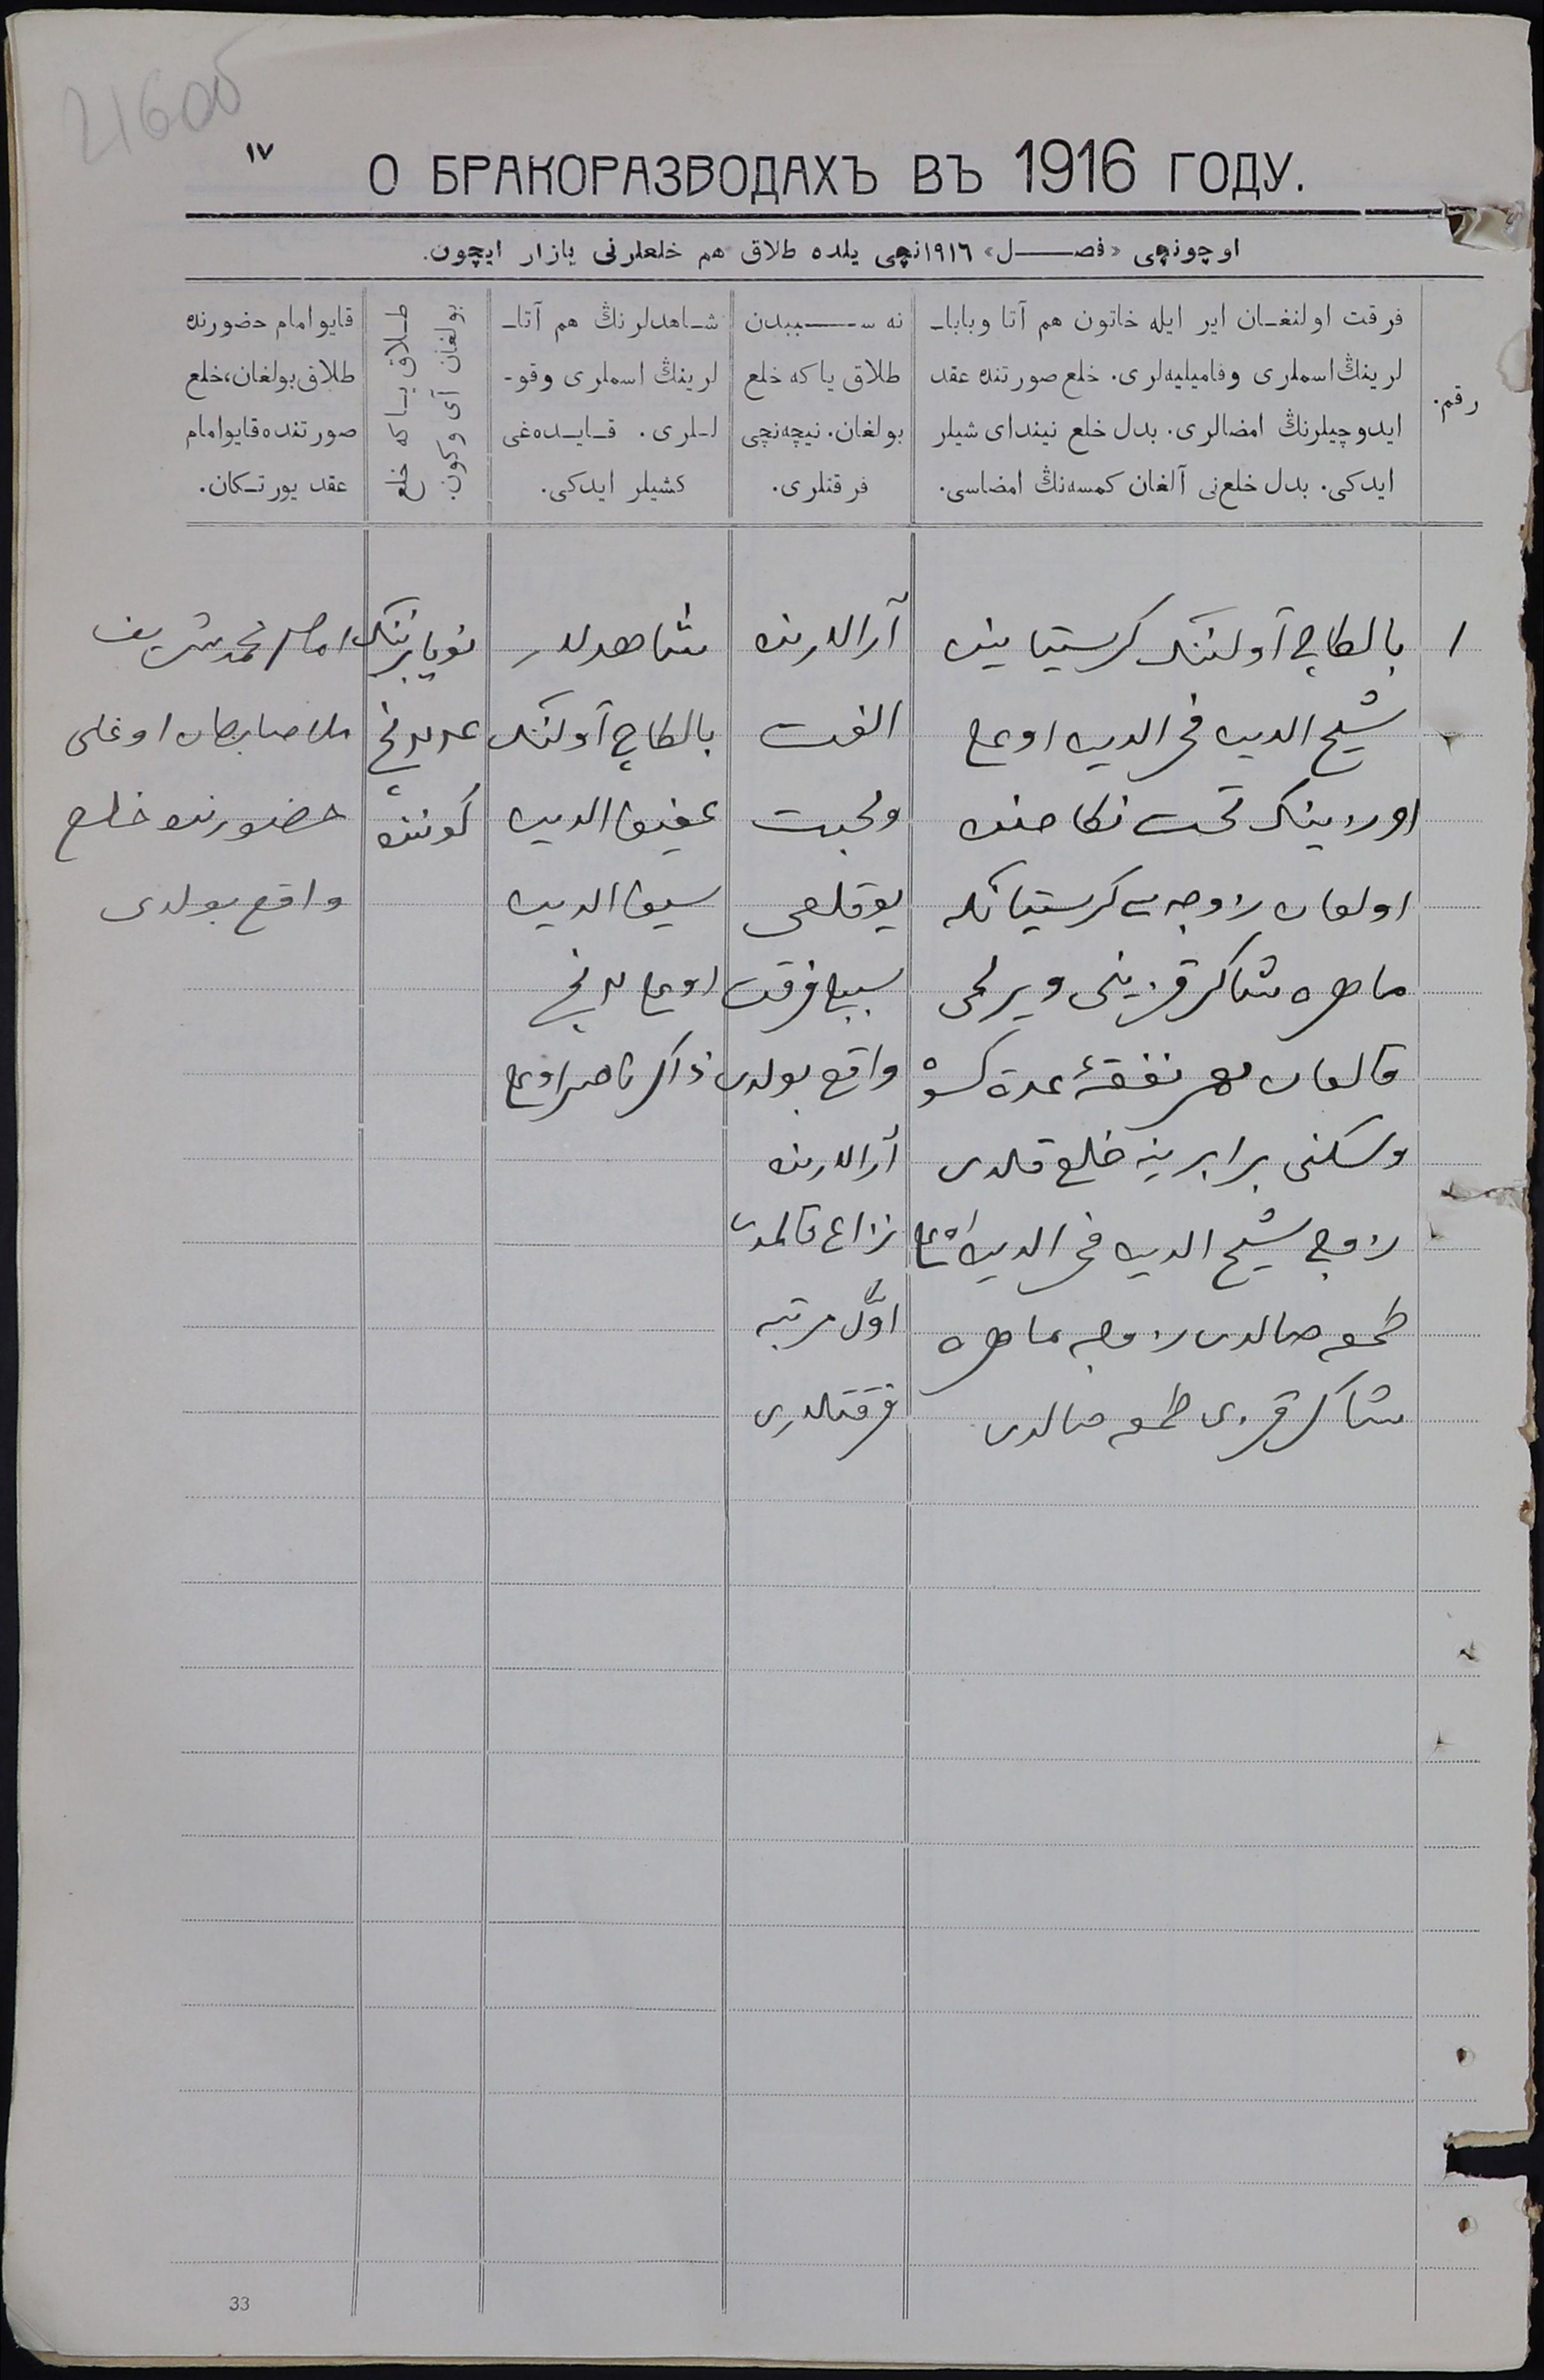 216об
١٧
О БРАКОРАЗВОДАХЪ ВЪ 1916 ГОДУ.
اوچونچی «فصل» ١٩١٦نچی یلده طلاق هم خلعلرنی یازار ایچون.
رقم.
فرقت اولنغان ایر ایله خاتون هم آتا وبابا-
لرینڭ اسملری وفامیلیه‌لری. خلع صورتنده عقد
ایدوچیلرنڭ امضالری. بدل خلع نیندای شیلر
ایدکی. بدل خلع‌نی آلغان کمسه‌نڭ امضاسی.
نه سببدن
طلاق یا که خلع
بولغان. نیچه‌نچی
فرقتلری.
شاهدلرنڭ هم آتا-
لرینڭ اسملری وقو-
للری. قایده‌غی
کشیلر ایدکی.
طلاق یا که خلع
بولغان آی وکون.
قایو امام حضورنده
طلاق بولغان، خلع
صورتنده قایو امام
عقد یورتکان.
١
بالطاچ آولننک کرستیانین
شیخ الدین فخر الدین اوغلی
اوزینک تحت نکاحنده
اولغان زوجه‌سی کرستیانکه
ماهره شاکر قزینی ویرلمی
قالغان مهر نفقۀ عدة کسوه
وسکنی برابرینه خلع قلدی
زوج شیخ الدین فخر الدین اوغلی
طمغه صالدی زوجه ماهره
شاکر قزی طمغه صالدی
آرالارنده
الفت
ومحبت
یوقلغی
سببلی فرقت
واقع بولدی
آرالارنده
نزاع قالمدی
اوّل مرتبه
فرقتلری
شاهدلر
بالطاچ آولننک
عفیف الدین
سیف الدین
اوغلی
ذاکر ناصر اوغلی
نویابرننک
کوننده
امام محمد شریف
ملا صابرجان اوغلی
حضورنده خلع
واقع بولدی
33